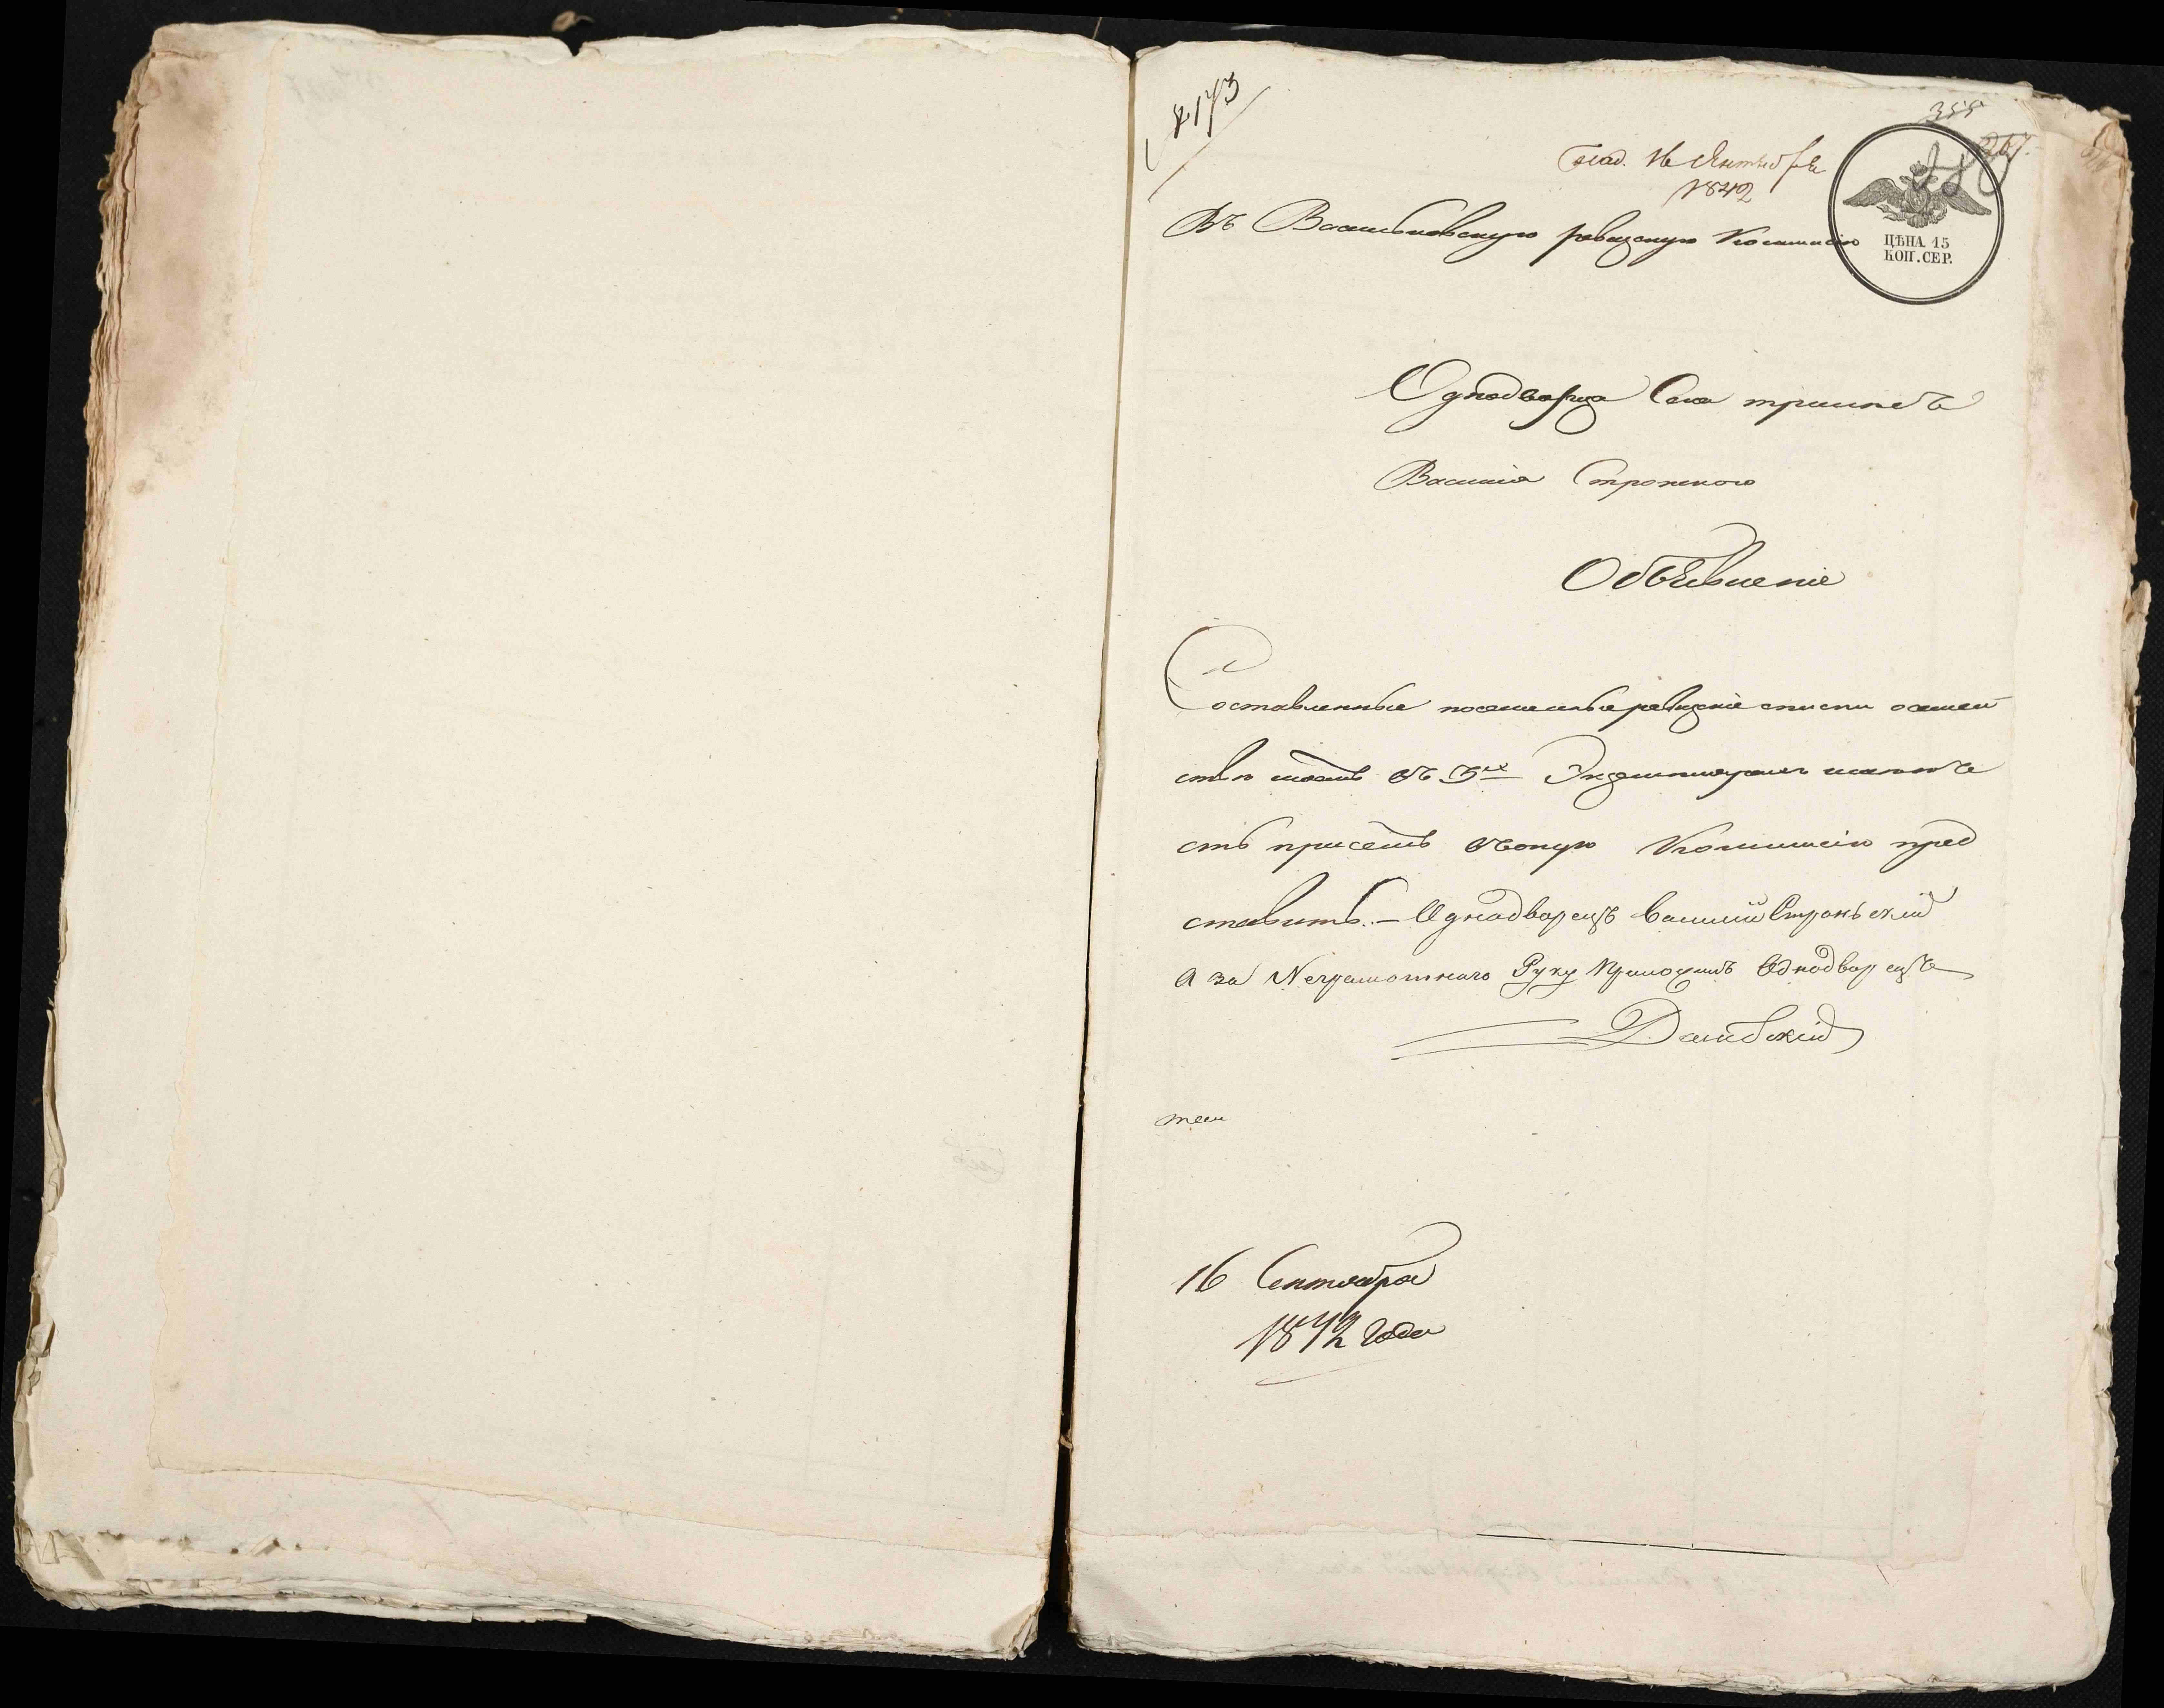 № 173
355
267
Под. 16 Сентября
1842
ЦѢНА 15
КОП. СЕР.
Въ Васильковскую ревизскую Коммисію
Однодворца Села
Василія Стронского
Объявленіе
Составленные посемейные ревизскіе списки о семей
ствѣ моемъ въ 3хъ Экземплярахъ
сть при семъ въ оную Коммисію пред
ставить. — Однодворецъ василій Строньскій
А за Неграмотнаго Руку Приложилъ Однодворецъ
16 Сентября
1842 года